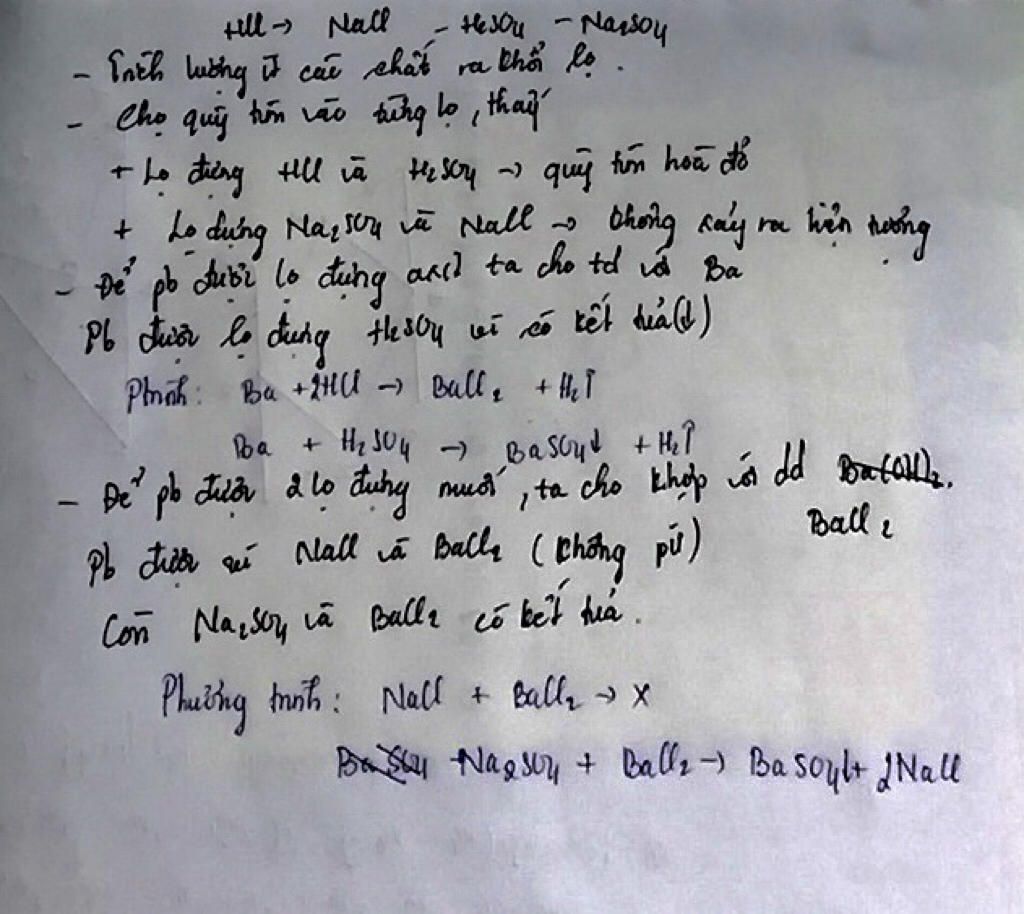 HCl → NaCl - H₂SO₄ - Na₂SO₄
- Trích lượng ít các chất ra khỏi lọ.
- Cho quỳ tím vào từng lọ, thấy
+ Lọ đựng HCl và H₂SO₄ → quỳ tím hoá đỏ
+ Lọ đựng Na₂SO₄ và NaCl → không xảy ra hiện tượng
- Để pb được lọ đựng axit ta cho td với Ba
Pb được lọ đựng H₂SO₄ vì có kết tủa(↓)
Ptrình: Ba + 2HCl → BaCl₂ + H₂↑
Ba + H₂SO₄ → BaSO₄↓ + H₂↑
- Để pb được 2 lọ đựng muối, ta cho khớp với dd Ba(OH)₂.
BaCl₂
Pb được NaCl và BaCl₂ (không pứ)
Còn Na₂SO₄ và BaCl₂ có kết tủa.
Phương trình: NaCl + BaCl₂ → X
BaSO₄ Na₂SO₄ + BaCl₂ → BaSO₄↓ + 2NaCl